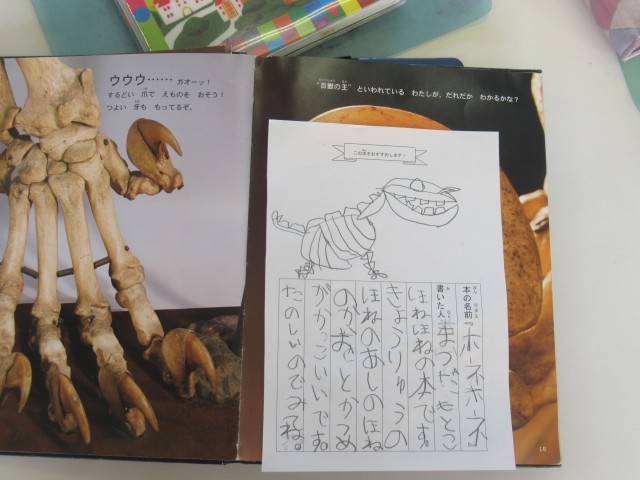 ウウウ…… ガオーッ！
するどい 爪で えものを おそう！
つよい 牙も もってるぞ。
“百獣の王” といわれている わたしが、だれだか わかるかな？
この本をおすすめします！
本の名前『ホーネホネ』
書いた人 まつだ もとこ
ほねほねの本です。
きょうりゅうの
ほねのあしのほね
のかおとかつめ
がかっこいいです。
たのしいのでみてね。